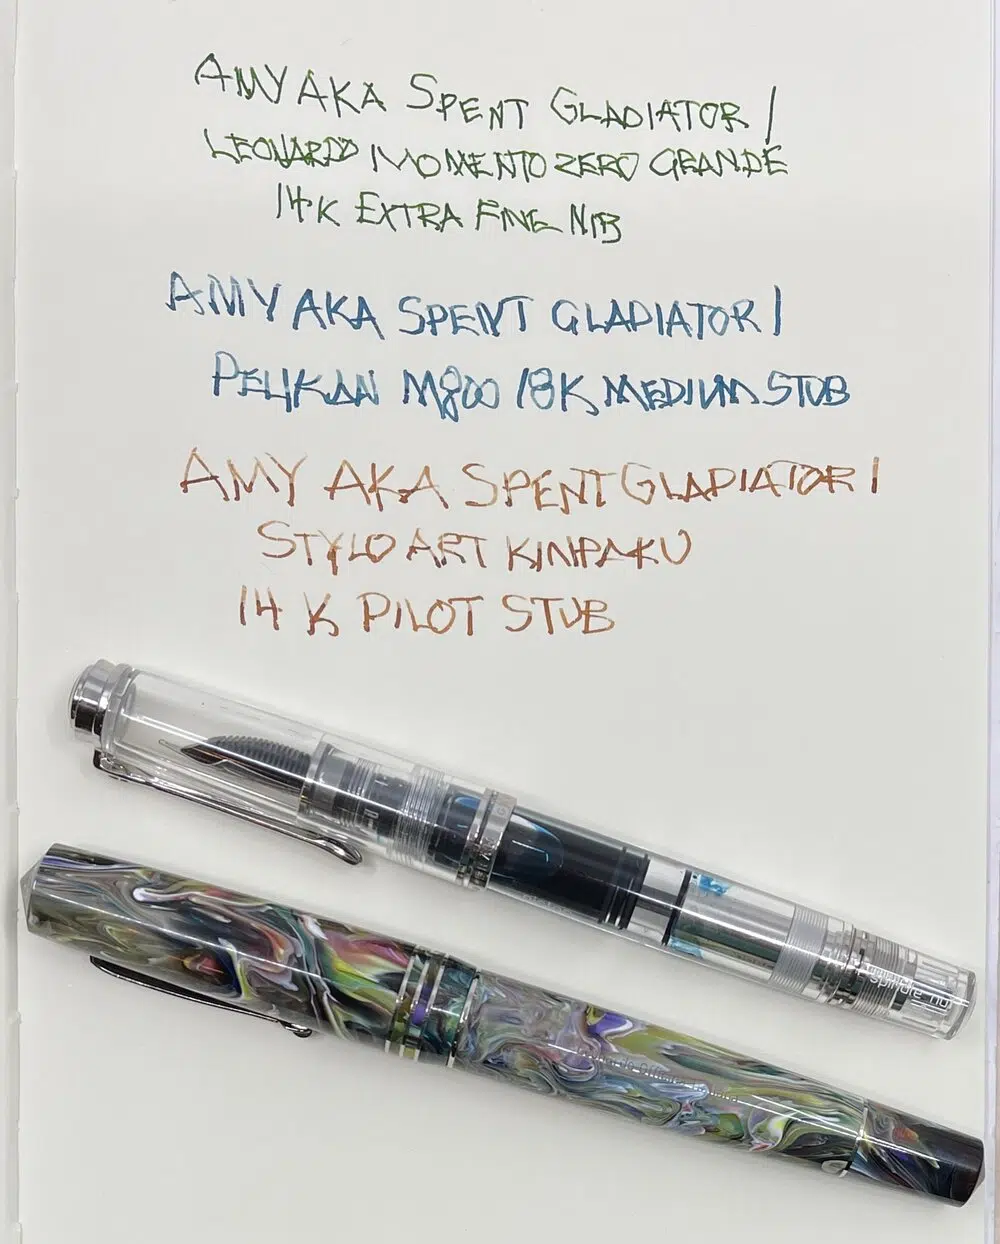 AMY AKA SPENT GLADIATOR 1
LEONARDO MOMENTO ZERO GRANDE
14K EXTRA FINE NIB
AMY AKA SPENT GLADIATOR 1
PELIKAN M800 18K MEDIUM STUB
AMY AKA SPENT GLADIATOR 1
STYLO ART KINPAKU
14 K PILOT STUB